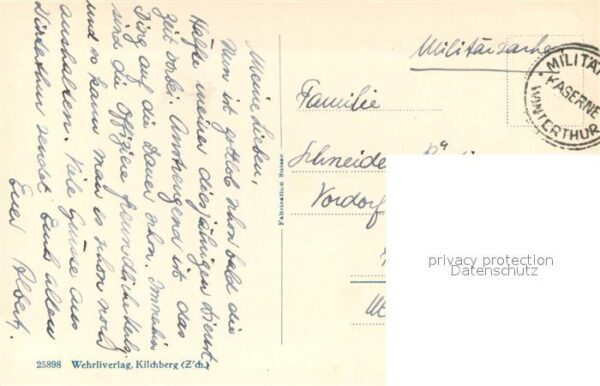 Meine Lieben,
Nun ist gottlob schon bald die
Hälfte meiner diesjährigen Dienst-
zeit vorbei. Anstrengend ist das
Ding auf die Dauer schon. Immerhin
sind die Offiziere freundliche Kerle
und so kann man es schon noch
aushalten. Viele Grüsse aus
Winterthur sendet Euch allen
Euer Albert.
Militärsache
MILITÄR
KASERNE
WINTERTHUR
Familie
Schneider
Vordorf
Fabrication Suisse
25898 Wehrliverlag, Kilchberg (Z'ch.)
privacy protection
Datenschutz